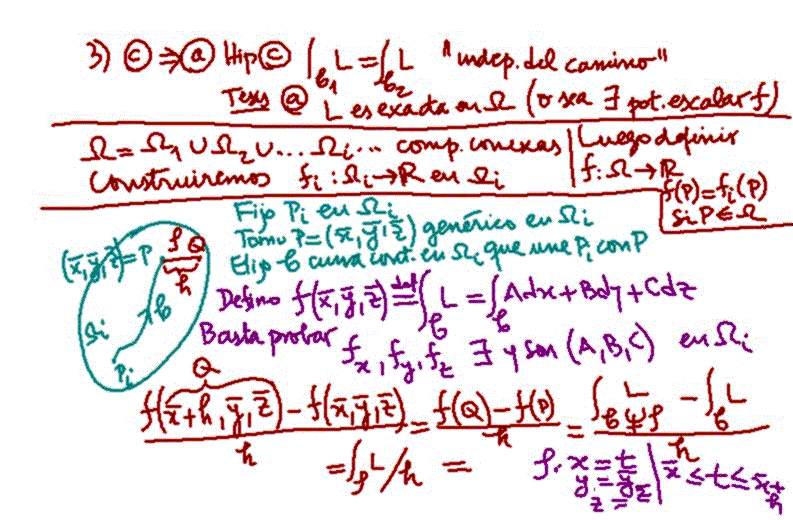 3) ⓒ ⇒ ⓐ Hip ⓒ ∫_{𝒞1} L = ∫_{𝒞2} L "indep. del camino"
Tesis ⓐ L es exacta en Ω (o sea ∃ pot. escalar f)
Ω = Ω1 ∪ Ω2 ∪ ... Ωi ... comp. conexas | Luego definir
Construiremos fi : Ωi → R en Ωi | f : Ω → R
f(P) = fi(P)
Si P ∈ Ω
Fijo Pi en Ωi
Tomo P = (x̄, ȳ, z̄) genérico en Ωi
Elijo 𝒞 curva cont. en Ωi que une Pi con P
(x̄, ȳ, z̄) = P ρ Q
h
Ωi 𝒞
Pi
Defino f(x̄, ȳ, z̄) def= ∫_𝒞 L = ∫_𝒞 Adx + Bdy + Cdz
Basta probar fx, fy, fz ∃ y son (A, B, C) en Ωi
Q
(f(x̄+h, ȳ, z̄) − f(x̄, ȳ, z̄))/h = (f(Q) − f(P))/h = (∫_{𝒞Ψρ} L − ∫_𝒞 L)/h
= ∫_ρ L/h = ρ. x = t | x̄ ≤ t ≤ x̄+h
y = ȳ
z = z̄